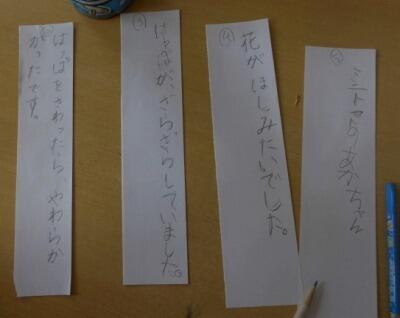 ⑤
ミニトマトのあかちゃん
④
花がほしみたいでした。
③
はっぱが、ざらざらしていました。
はっぱをさわったら、やわらか
かったです。